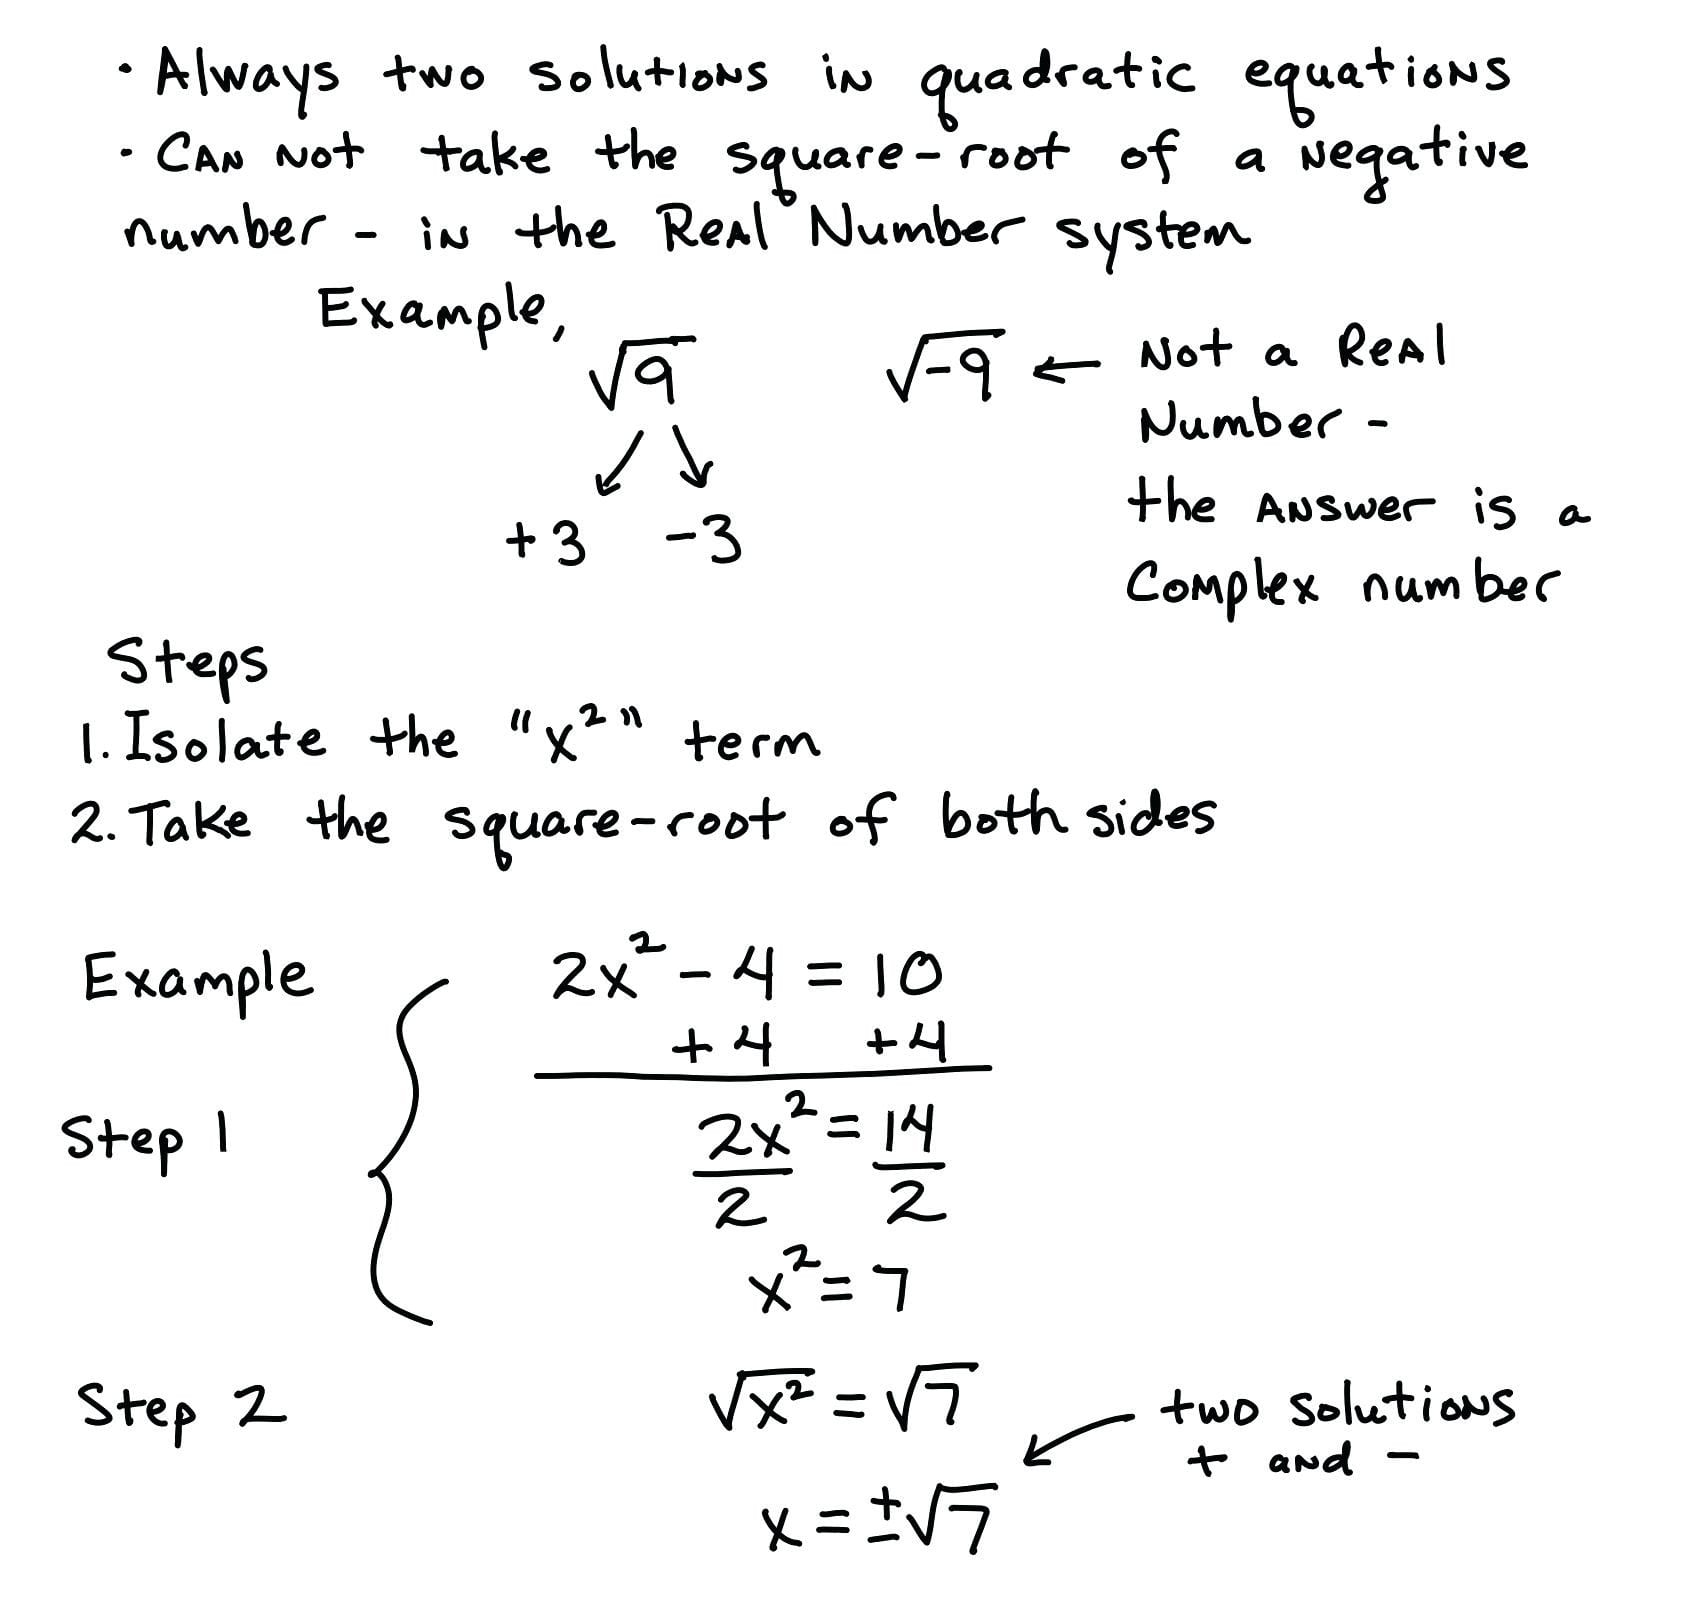 · Always two solutions in quadratic equations
· Can not take the square-root of a negative
number - in the Real Number system
Example,
√9 √-9 ← Not a Real
Number -
+3 -3 the Answer is a
Complex number
Steps
1. Isolate the "x²" term
2. Take the square-root of both sides
Example 2x² - 4 = 10
+4 +4
Step 1 2x² = 14
2 2
x² = 7
Step 2 √x² = √7 two solutions
+ and -
x = ±√7